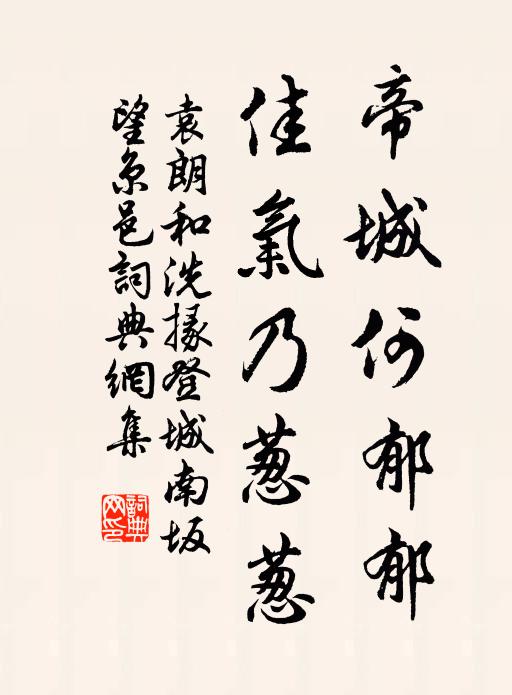 帝城何郁郁
佳氣乃葱葱
袁朗和洗掾登城南坂
望京邑詞典網集
詞典
网印